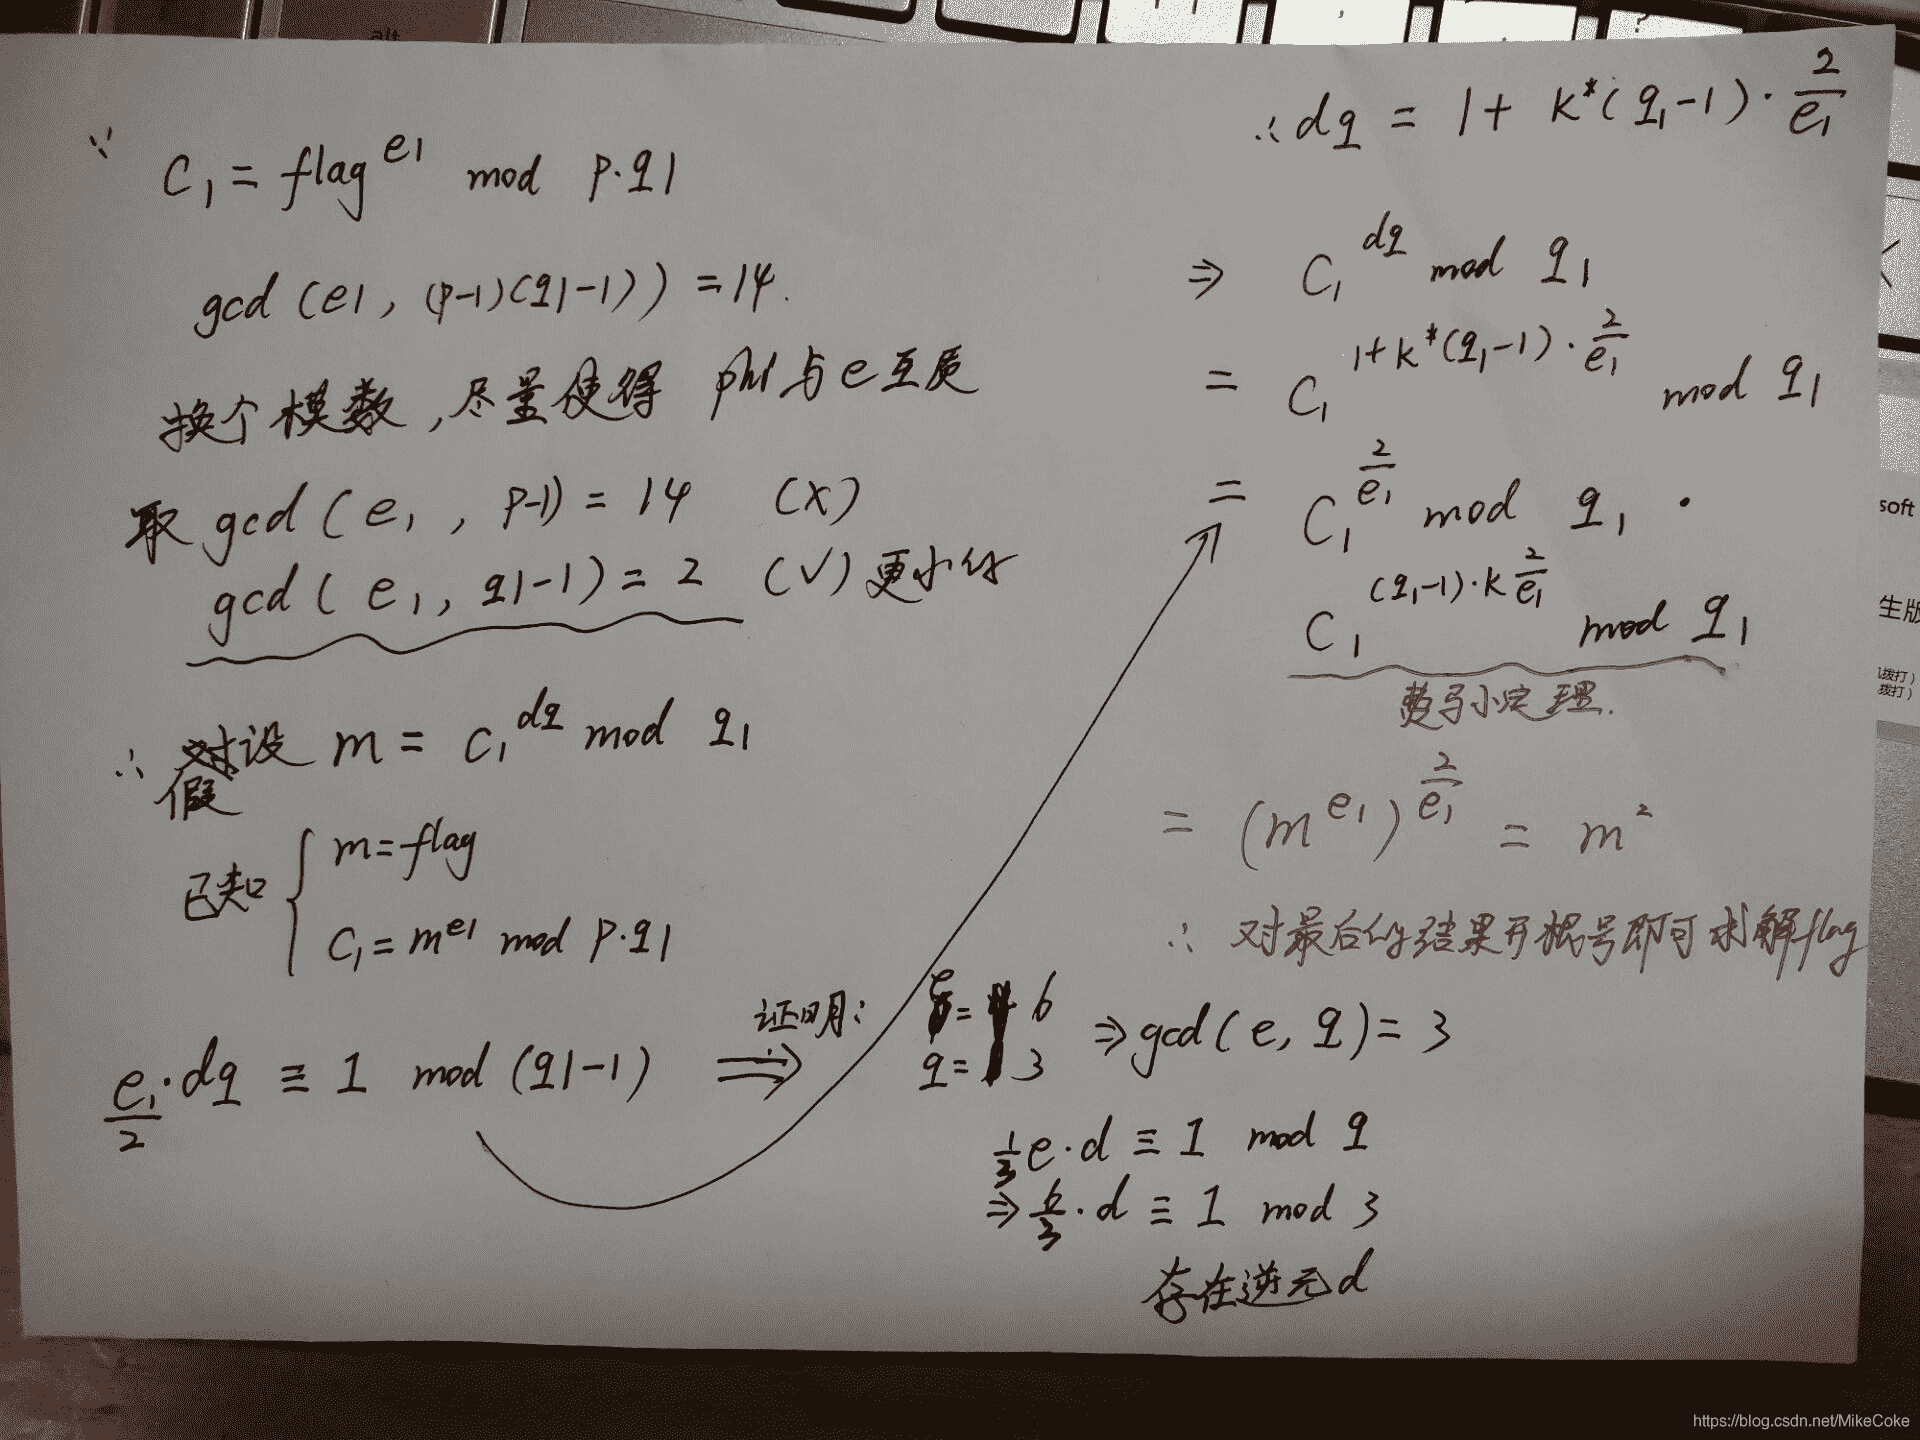 alt
∵ C₁ = flag^e1 mod p·q1
gcd (e1, (p-1)(q1-1)) = 14.
换个模数,尽量使得 phi与e互质
取 gcd (e₁, p-1) = 14 (X)
gcd (e₁, q1-1) = 2 (√) 更小的
∴ 假设 m = C₁^dq mod q₁
已知 { m = flag
C₁ = m^e1 mod p·q1
e₁/2 · dq ≡ 1 mod (q1-1) ⇒
证明: e = 6
q = 3 ⇒ gcd(e, q) = 3
1/3 e·d ≡ 1 mod q
⇒ 6/3 · d ≡ 1 mod 3
存在逆元d
∴ dq = 1 + k*(q₁-1) · 2/e₁
⇒ C₁^dq mod q₁
= C₁^(1+k*(q₁-1)·2/e₁) mod q₁
= C₁^(2/e₁) mod q₁ ·
C₁^((q₁-1)·k 2/e₁) mod q₁
费马小定理.
= (m^e1)^(2/e₁) = m²
∴ 对最后的结果开根号即可求解flag
soft
生版
拨打)
拨打)
https://blog.csdn.net/MikeCoke